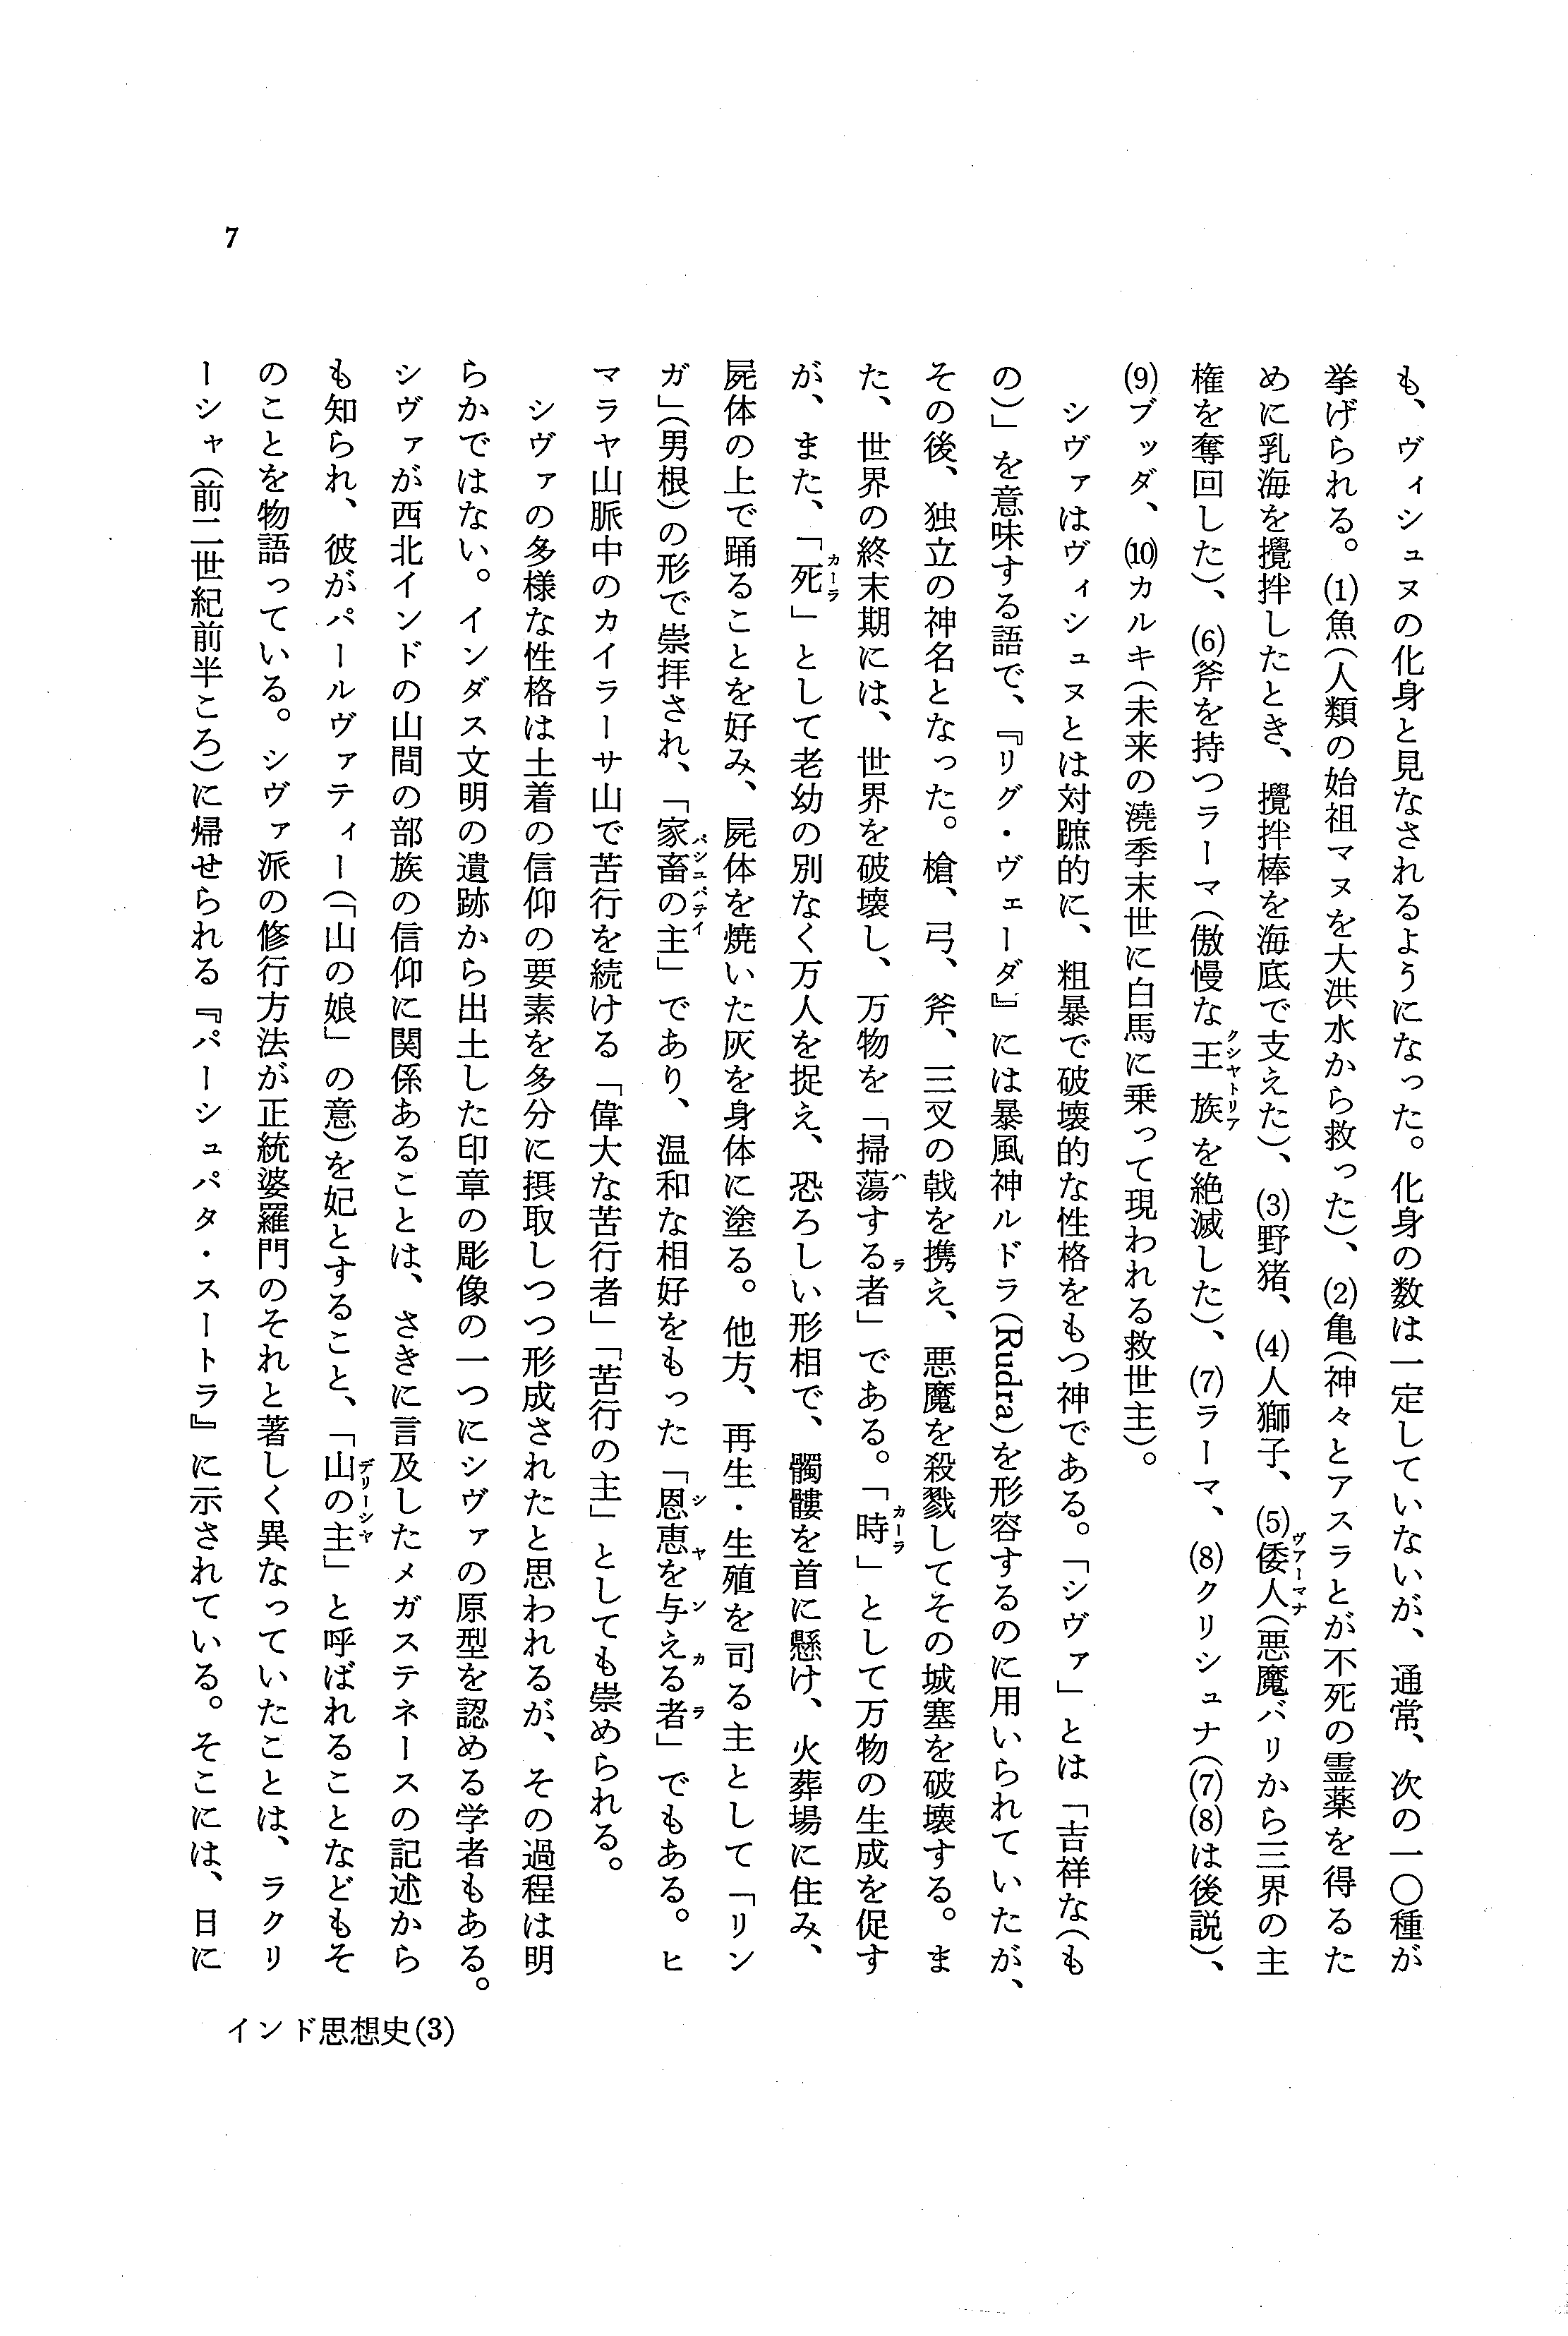 も、ヴィシュヌの化身と見なされるようになった。化身の数は一定していないが、通常、次の一〇種が
挙げられる。(1)魚(人類の始祖マヌを大洪水から救った)、(2)亀(神々とアスラとが不死の霊薬を得るた
めに乳海を攪拌したとき、攪拌棒を海底で支えた)、(3)野猪、(4)人獅子、(5)倭人(悪魔バリから三界の主
権を奪回した)、(6)斧を持つラーマ(傲慢な王族を絶滅した)、(7)ラーマ、(8)クリシュナ((7)(8)は後説)、
(9)ブッダ、(10)カルキ(未来の澆季末世に白馬に乗って現われる救世主)。
シヴァはヴィシュヌとは対蹠的に、粗暴で破壊的な性格をもつ神である。「シヴァ」とは「吉祥な(も
の)」を意味する語で、『リグ・ヴェーダ』には暴風神ルドラ(Rudra)を形容するのに用いられていたが、
その後、独立の神名となった。槍、弓、斧、三叉の戟を携え、悪魔を殺戮してその城塞を破壊する。ま
た、世界の終末期には、世界を破壊し、万物を「掃蕩する者」である。「時」として万物の生成を促す
が、また、「死」として老幼の別なく万人を捉え、恐ろしい形相で、髑髏を首に懸け、火葬場に住み、
屍体の上で踊ることを好み、屍体を焼いた灰を身体に塗る。他方、再生・生殖を司る主として「リン
ガ」(男根)の形で崇拝され、「家畜の主」であり、温和な相好をもった「恩恵を与える者」でもある。ヒ
マラヤ山脈中のカイラーサ山で苦行を続ける「偉大な苦行者」「苦行の主」としても崇められる。
シヴァの多様な性格は土着の信仰の要素を多分に摂取しつつ形成されたと思われるが、その過程は明
らかではない。インダス文明の遺跡から出土した印章の彫像の一つにシヴァの原型を認める学者もある。
シヴァが西北インドの山間の部族の信仰に関係あることは、さきに言及したメガステネースの記述から
も知られ、彼がパールヴァティー(「山の娘」の意)を妃とすること、「山の主」と呼ばれることなどもそ
のことを物語っている。シヴァ派の修行方法が正統婆羅門のそれと著しく異なっていたことは、ラクリ
ーシャ(前二世紀前半ころ)に帰せられる『パーシュパタ・スートラ』に示されている。そこには、日に
カーラ
カーラ
ハ ラ
パシュパティ
シャンカラ
クシャトリア
ヴァーマナ
デリーシャ
7
インド思想史(3)